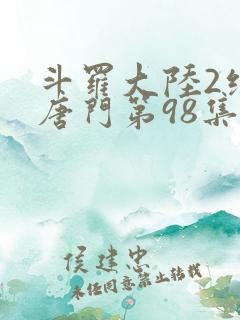 斗羅大陸2
唐門第98集
侯建忠
未经同意禁止转载